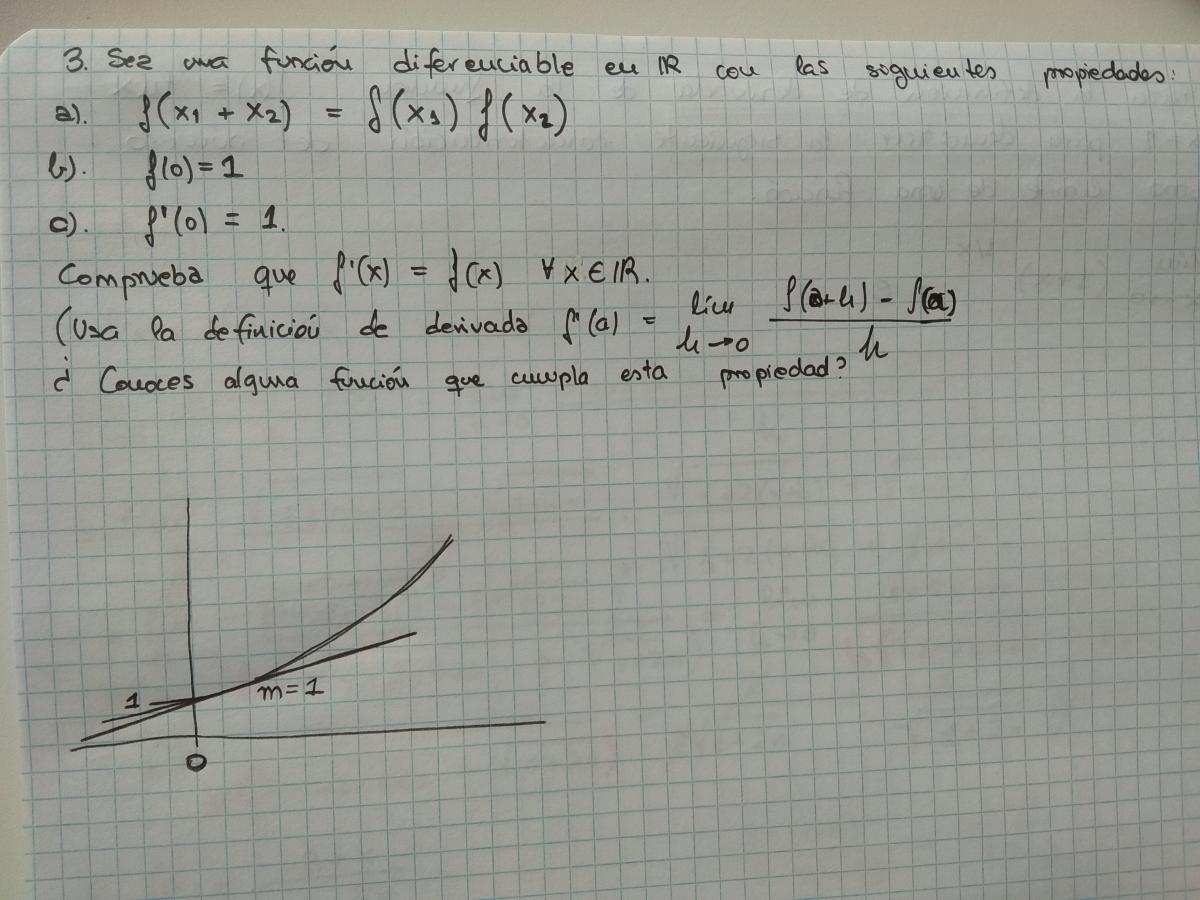 3. Sea una función diferenciable en ℝ con las siguientes propiedades:
a). f(x₁ + x₂) = f(x₁) f(x₂)
b). f(0) = 1
c). f'(0) = 1.
Comprueba que f'(x) = f(x) ∀ x ∈ ℝ.
(Usa la definición de derivada f'(a) = lim h→0 f(a+h) - f(a) / h
¿ Conoces alguna función que cumpla esta propiedad?
1
m = 1
0